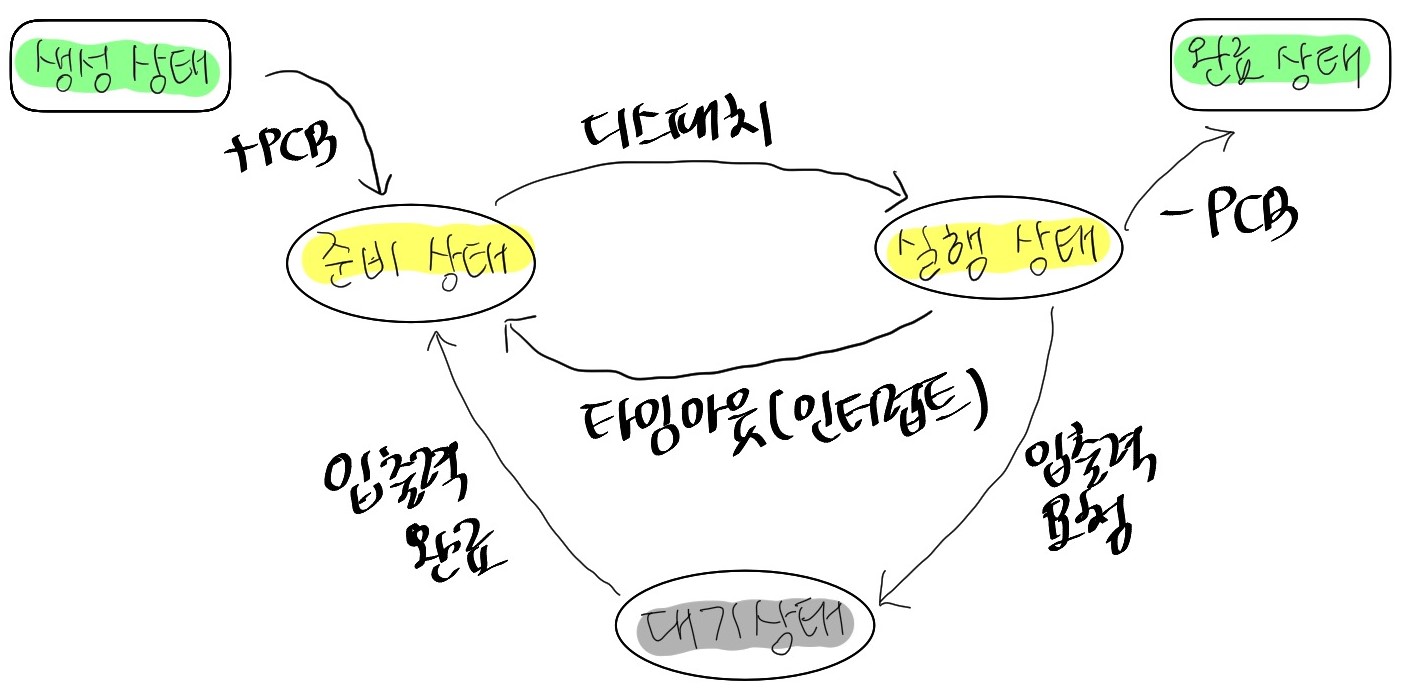 생성 상태
완료 상태
+PCB
디스패치
-PCB
준비 상태
실행 상태
타임아웃(인터럽트)
입출력
완료
입출력
요청
대기상태